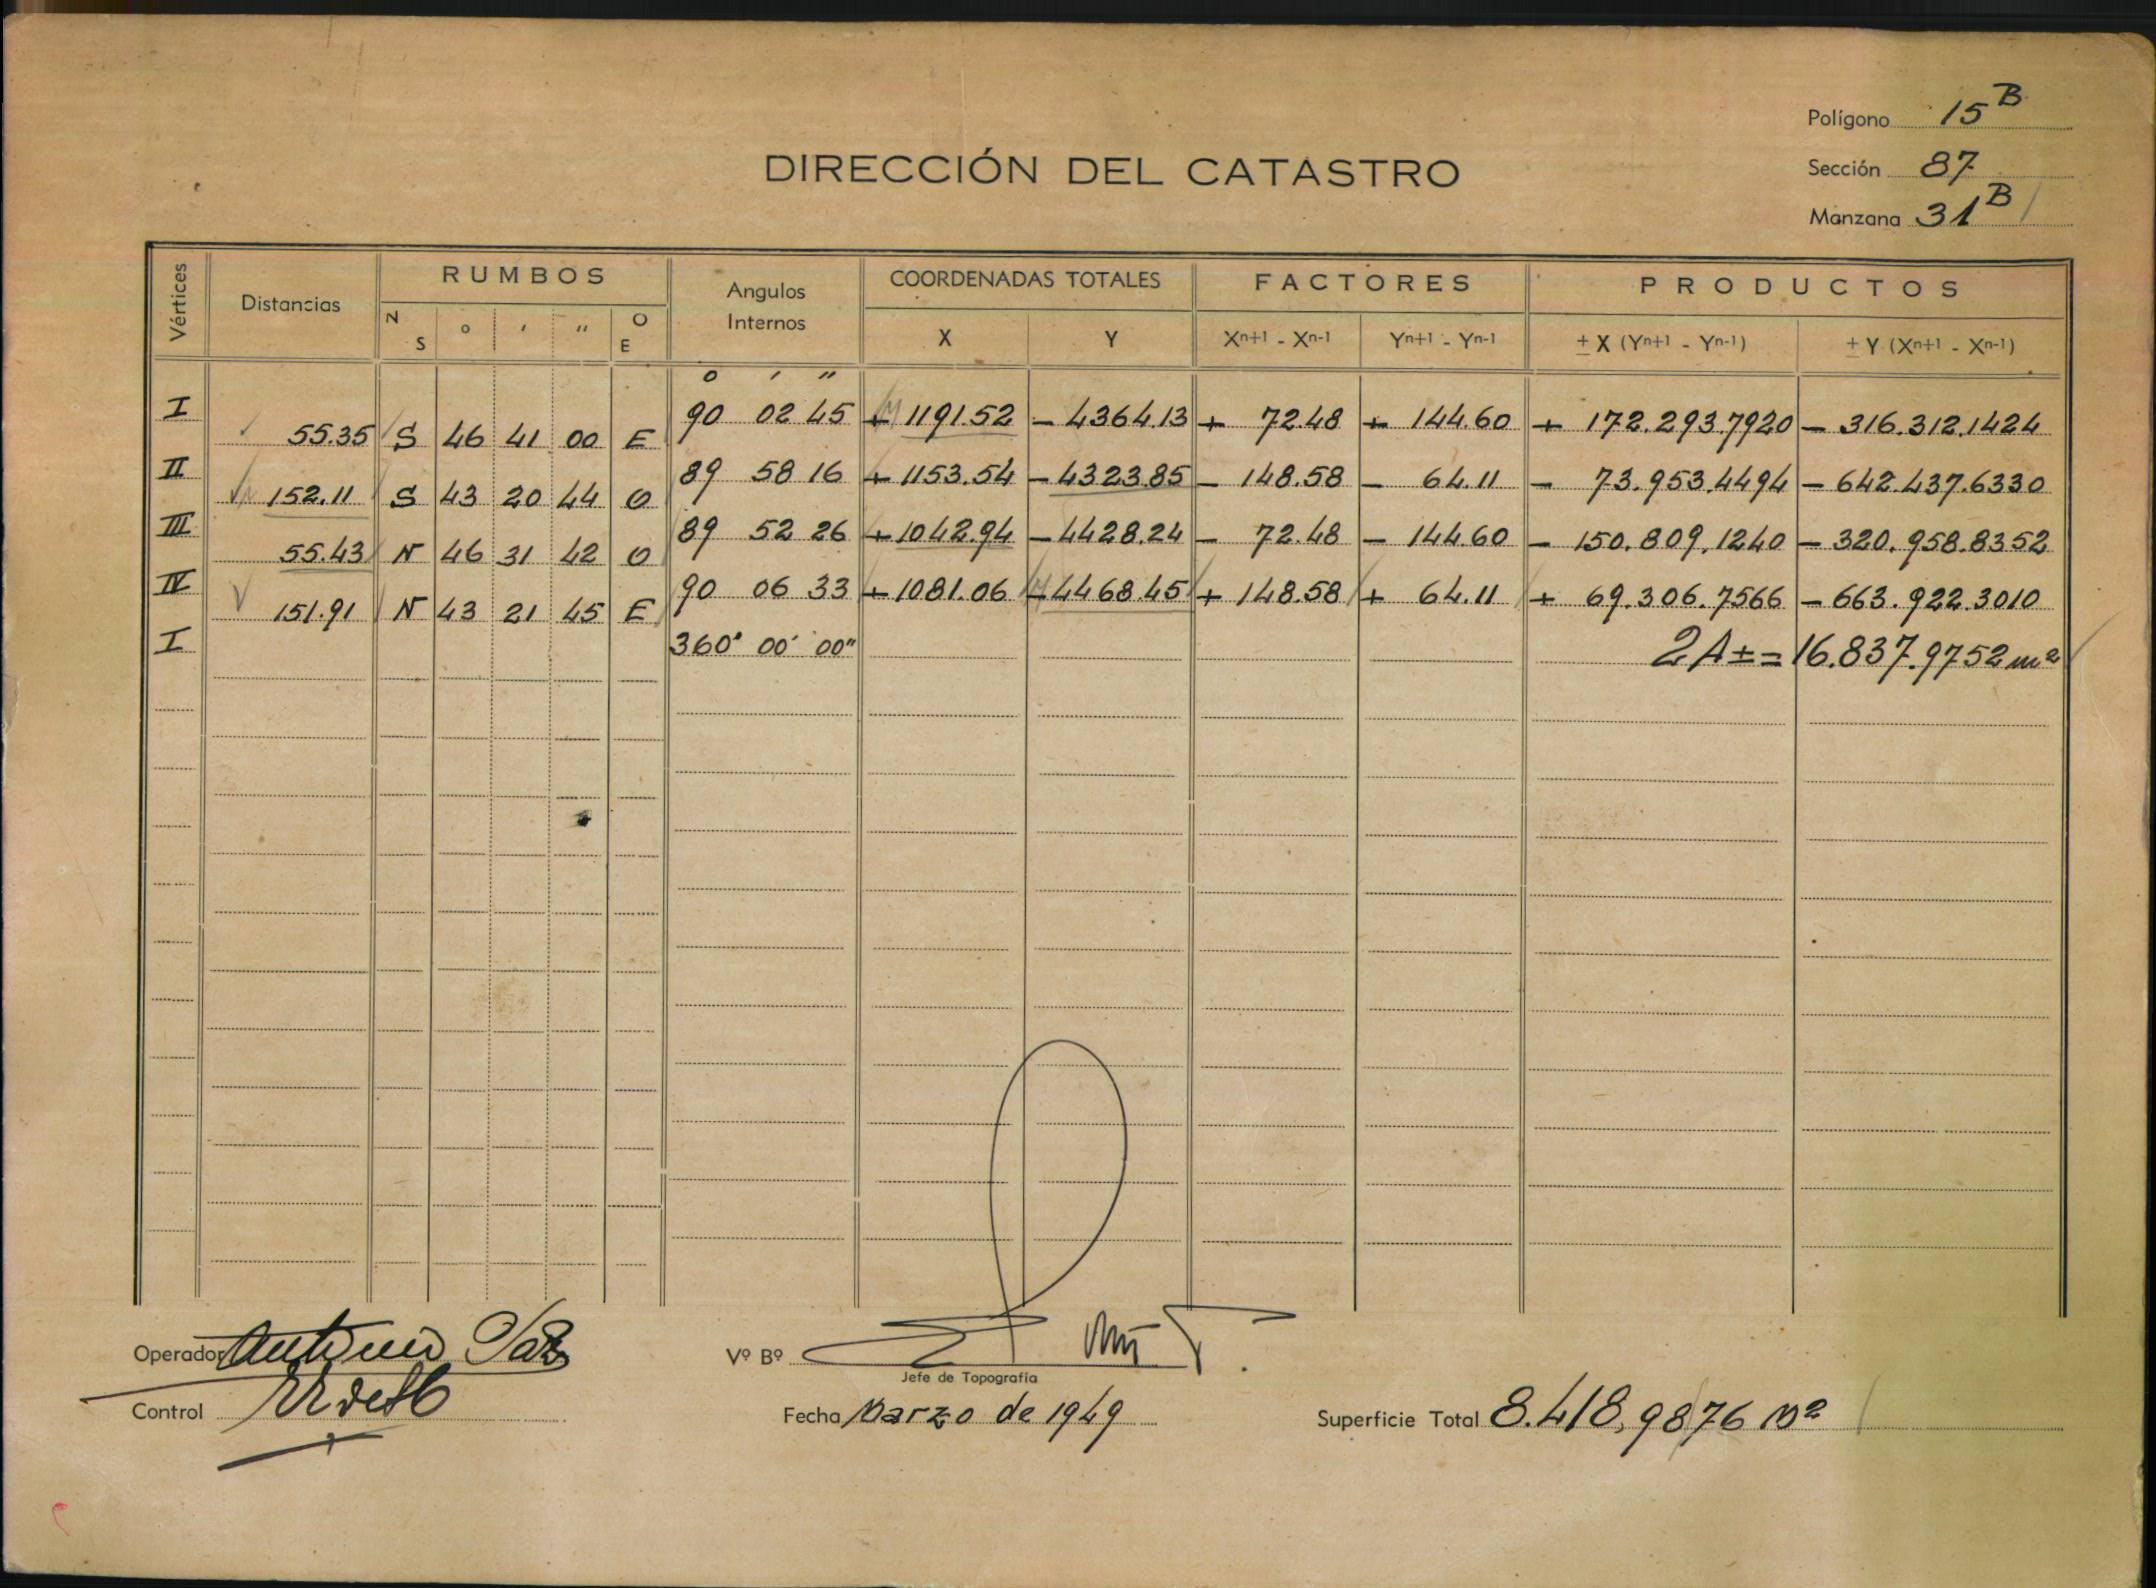 Polígono 15 B
DIRECCIÓN DEL CATASTRO
Sección 87
Manzana 31 B
Vértices Distancias RUMBOS Angulos Internos COORDENADAS TOTALES FACTORES PRODUCTOS
N S ° ' " O E X Y Xn+1 - Xn-1 Yn+1 - Yn-1 ± X (Yn+1 - Yn-1) ± Y (Xn+1 - Xn-1)
° ' "
I 90 02 45 + 1191.52 - 4364.13 + 72.48 + 144.60 + 172.293.7920 - 316.312.1424
55.35 S 46 41 00 E
II 89 58 16 + 1153.54 - 4323.85 - 148.58 - 64.11 - 73.953.4494 - 642.437.6330
152.11 S 43 20 44 O
III 89 52 26 + 1042.94 - 4428.24 - 72.48 - 144.60 - 150.809.1240 - 320.958.8352
55.43 N 46 31 42 O
IV 90 06 33 + 1081.06 - 4468.45 + 148.58 + 64.11 + 69.306.7566 - 663.922.3010
151.91 N 43 21 45 E
I 360° 00' 00" 2A± = 16.837.9752 m2
Operador Antonio
Vº Bº
Jefe de Topografía
Control
Fecha Marzo de 1949
Superficie Total 8.418,9876 m2